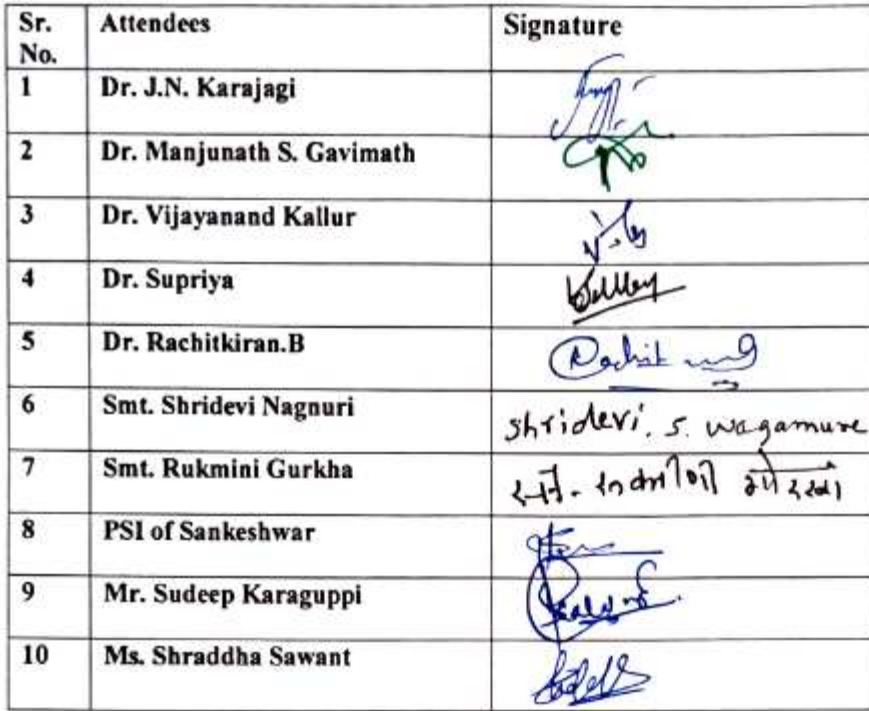 Sr. No. Attendees Signature
1 Dr. J.N. Karajagi
2 Dr. Manjunath S. Gavimath
3 Dr. Vijayanand Kallur
4 Dr. Supriya
5 Dr. Rachitkiran.B Rachit
6 Smt. Shridevi Nagnuri shridevi. s. wagamure
7 Smt. Rukmini Gurkha
8 PSI of Sankeshwar
9 Mr. Sudeep Karaguppi
10 Ms. Shraddha Sawant